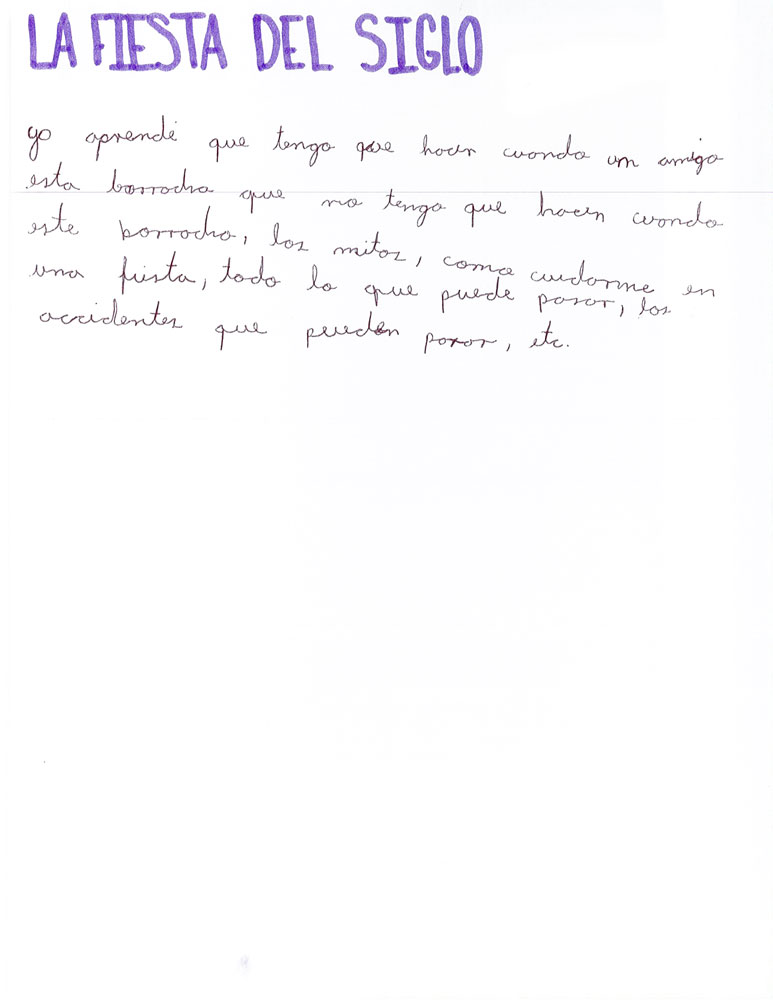 LA FIESTA DEL SIGLO
yo aprendé que tengo que hacer cuando un amigo
esta borracho que no tengo que hacer cuando
este borracho, los mitos, como cuidarme en
una fiesta, todo lo que puede pasar, los
accidentes que pueden pasar, etc.